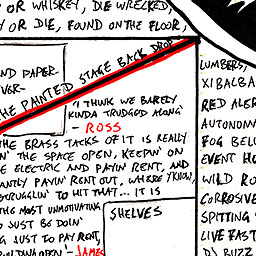 OR WHISKEY, DIE WRECKED,
OR DIE, FOUND ON THE FLOOR,
ND PAPER-
VER-
THE PAINTED STAGE BACK DROP
"I THINK WE BARELY
KINDA TRUDGED ALONG"
- ROSS
THE BRASS TACKS OF IT IS REALLY
THE SPACE OPEN, KEEPIN' ON
ELECTRIC AND PAYIN' RENT, AND
ANTLY PAYIN' RENT OUT, WHERE Y'KNOW,
STRUGGLIN' TO HIT THAT... IT IS
THE MOST UNMOTIVATING
O JUST BE DOIN'
G JUST TO PAY RENT,
OPEN" - JAMES
SHELVES
LUMBERS,
XIBALBA
RED ALER
AUTONOM
FOG BEL
EVENT HO
WILD RO
CORROSIV
SPITTING
LIVE FAST
DJ BUZZ